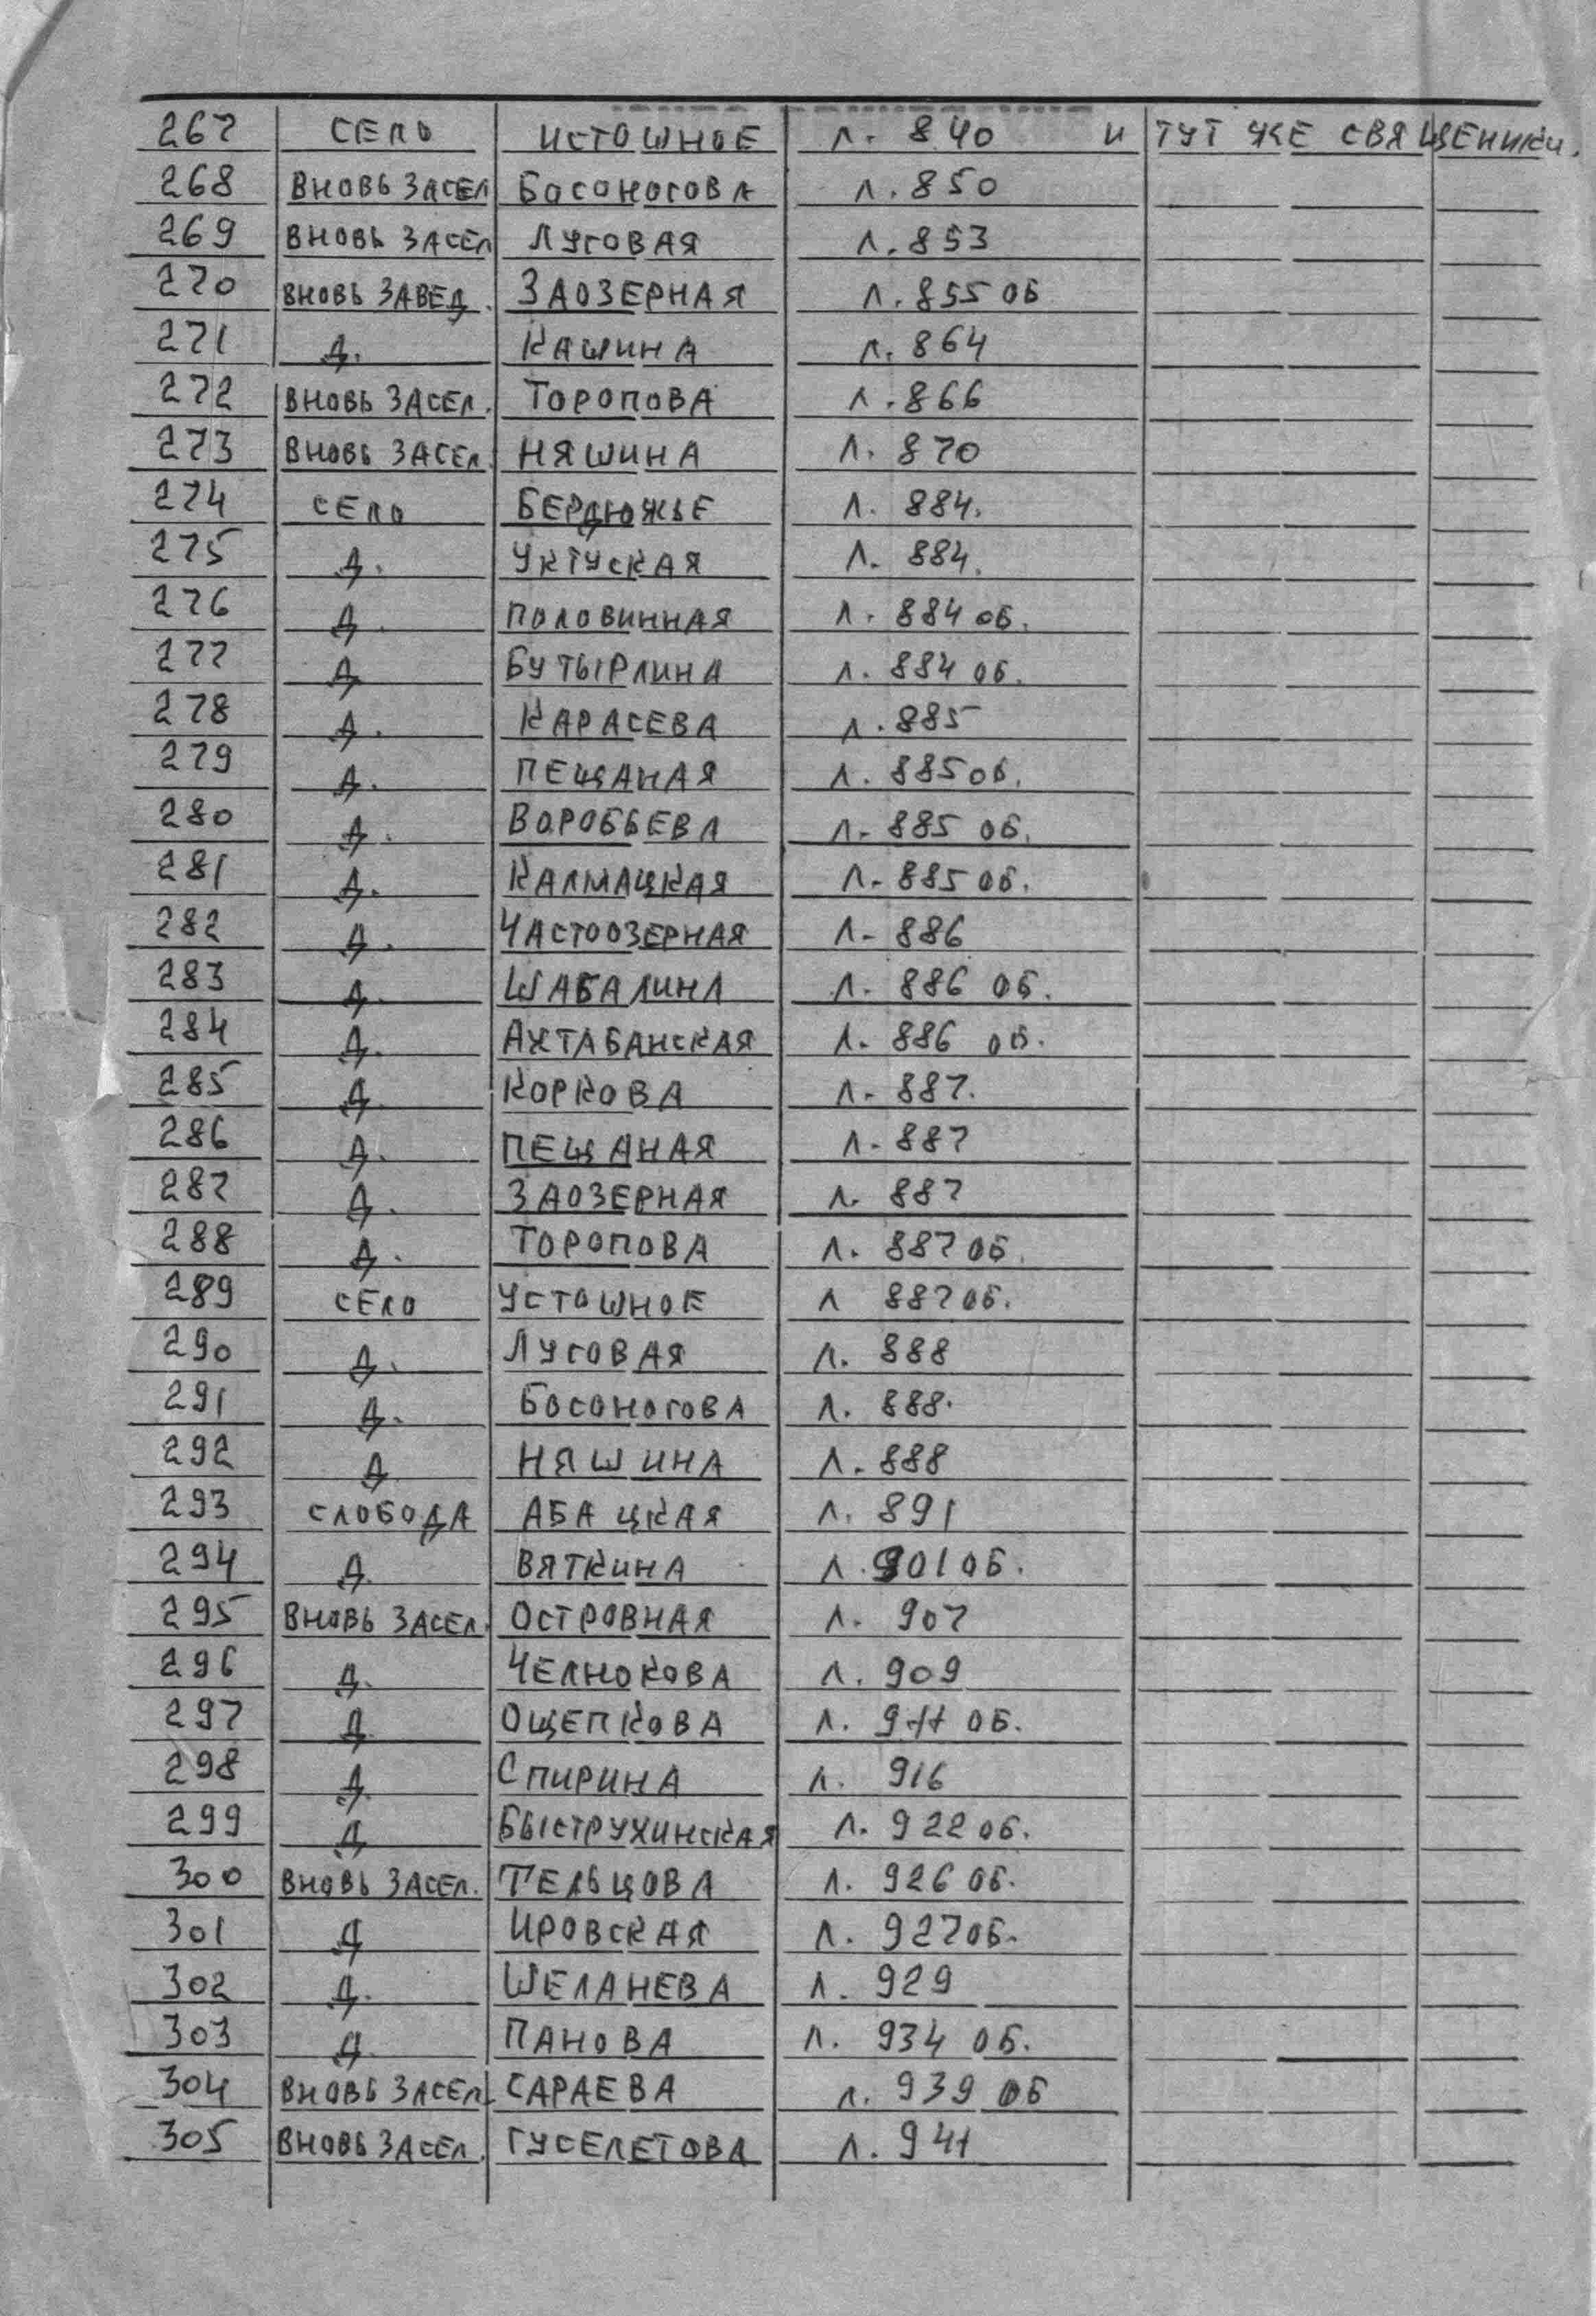 267 СЕЛО ИСТОШНОЕ Л. 840 И ТУТ ЖЕ СВЯЩЕННИКИ.
268 ВНОВЬ ЗАСЕЛ БОСОНОГОВА Л. 850
269 ВНОВЬ ЗАСЕЛ ЛУГОВАЯ Л. 853
270 ВНОВЬ ЗАВЕД. ЗАОЗЕРНАЯ Л. 855 ОБ
271 Д. КАШИНА Л. 864
272 ВНОВЬ ЗАСЕЛ. ТОРОПОВА Л. 866
273 ВНОВЬ ЗАСЕЛ. НЯШИНА Л. 870
274 СЕЛО БЕРДЮЖЬЕ Л. 884.
275 Д. УКТУСКАЯ Л. 884.
276 Д. ПОЛОВИННАЯ Л. 884 ОБ.
277 Д БУТЫРЛИНА Л. 884 ОБ.
278 Д. КАРАСЕВА Л. 885
279 Д. ПЕЩАНАЯ Л. 885 ОБ.
280 Д. ВОРОБЬЕВА Л. 885 ОБ.
281 Д. КАЛМАЦКАЯ Л. 885 ОБ.
282 Д. ЧАСТООЗЕРНАЯ Л. 886
283 Д. ШАБАЛИНА Л. 886 ОБ.
284 Д. АХТАБАНСКАЯ Л. 886 ОБ.
285 Д. КОРКОВА Л. 887.
286 Д. ПЕЩАНАЯ Л. 887
287 Д. ЗАОЗЕРНАЯ Л. 887
288 Д. ТОРОПОВА Л. 887 ОБ.
289 СЕЛО УСТОШНОЕ Л 887 ОБ.
290 Д. ЛУГОВАЯ Л. 888
291 Д. БОСОНОГОВА Л. 888.
292 Д НЯШИНА Л. 888
293 СЛОБОДА АБАЦКАЯ Л. 891
294 Д. ВЯТКИНА Л. 901 ОБ.
295 ВНОВЬ ЗАСЕЛ. ОСТРОВНАЯ Л. 907
296 Д. ЧЕЛНОКОВА Л. 909
297 Д. ОЩЕПКОВА Л. 911 ОБ.
298 Д. СПИРИНА Л. 916
299 Д БЫСТРУХИНСКАЯ Л. 922 ОБ.
300 ВНОВЬ ЗАСЕЛ. ТЕЛЬЦОВА Л. 926 ОБ.
301 Д ИРОВСКАЯ Л. 927 ОБ.
302 Д. ШЕЛАНЕВА Л. 929
303 Д. ПАНОВА Л. 934 ОБ.
304 ВНОВЬ ЗАСЕЛ. САРАЕВА Л. 939 ОБ
305 ВНОВЬ ЗАСЕЛ. ГУСЕЛЕТОВА Л. 941